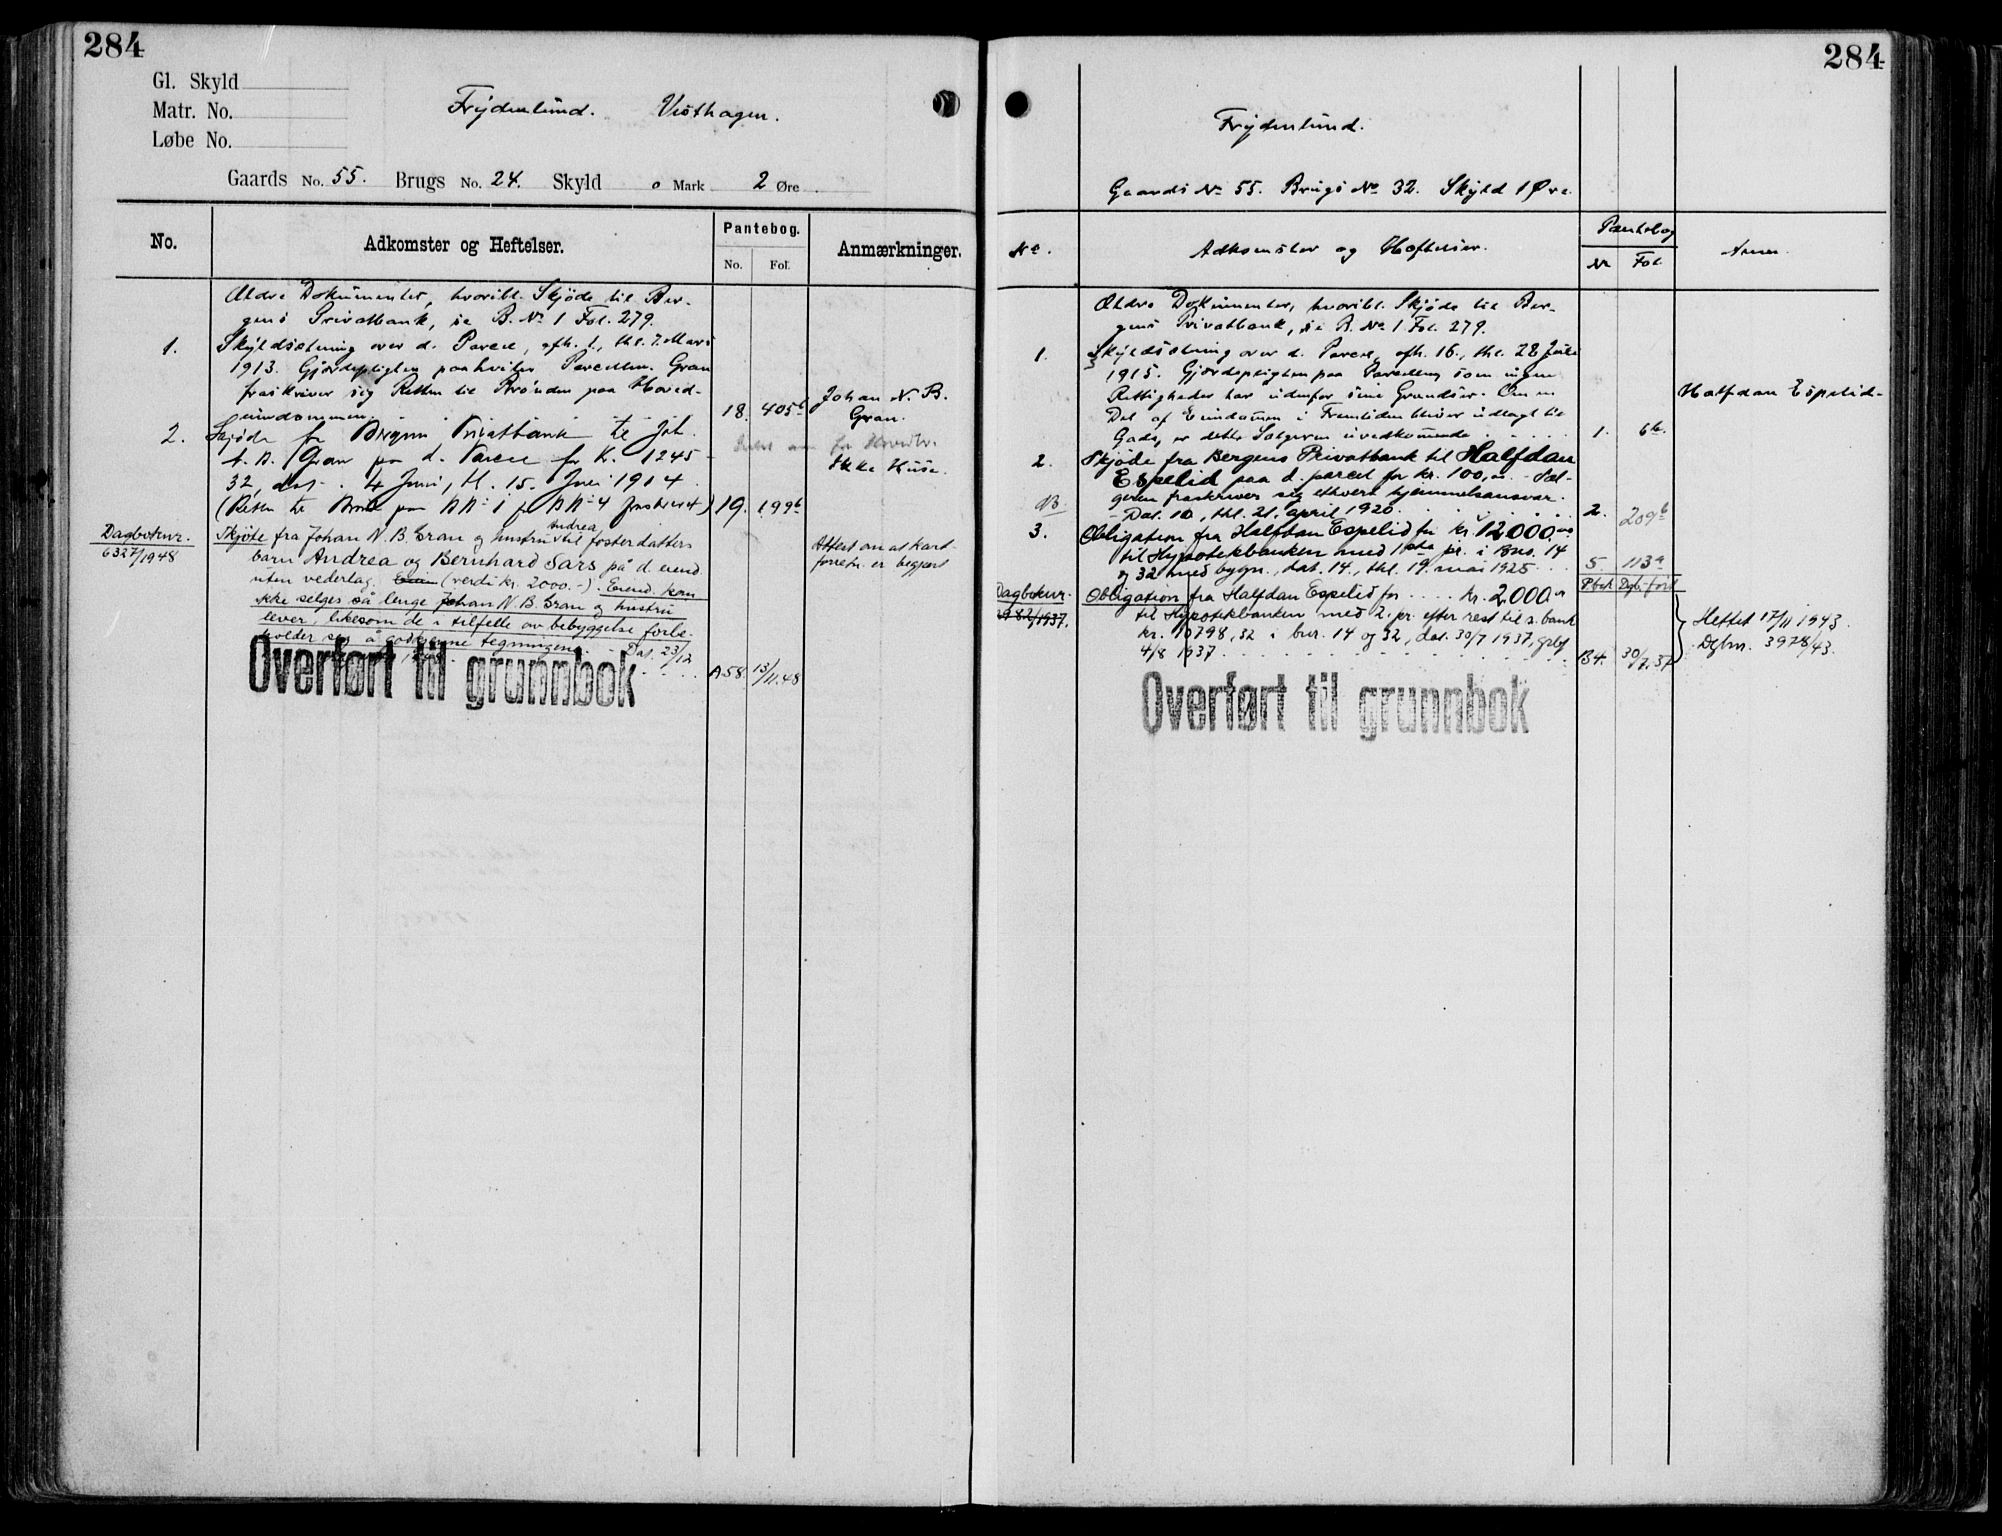 284
Gl. Skyld
Matr. No.
Løbe No.
Frydenlund. Vesthagen.
Gaards No. 55. Brugs No. 24. Skyld 0 Mark 2 Øre
No.
Adkomster og Heftelser.
Pantebog.
No. Fol.
Anmærkninger.
Ældre Dokumenter, hvoribl. Skjøde til Ber-
gens Privatbank, se B. No 1 Fol. 279.
1. Skyldsætning over d. Parcel, afh. 1., thl. 7. Mars
1913. Gjerdepligten paahviler Parcellen. Gran
fraskriver sig Retten til Brønden paa Hoved-
eiendommen. 18. 405b
Johan N. B.
Gran.
2. Skjøde fra Bergens Privatbank til Joh.
N. B. Gran paa d. Parcel for Kr. 1245
32, dat. 4 Juni, tl. 15. Juni 1914.
(Retten til Brønd paa BNo 1 fraskrevet) 19. 199b
Ikke Huse.
Dagboknr.
6327/1948
Skjøte fra Johan N. B. Gran og hustru Andrea til fosterdatters
barn Andrea og Bernhard Sars på d. eiend.
uten vederlag. (verdi kr. 2000.-). Eiend. kan
ikke selges så lenge Johan N. B. Gran og hustru
lever, likesom de i tilfelle av bebyggelse forbe-
holder seg å godkjenne tegningene. - Dat. 23/12
A58. 13/11.48
Attest om at kart-
forretn. er begjært
Overført til grunnbok
284
Frydenlund.
Gaards No 55. Brugs No 32. Skyld 1 Øre
No.
Adkomster og Heftelser.
Pantebog
No Fol.
Anm.
Ældre Dokumenter, hvoribl. Skjøde til Ber-
gens Privatbank, se B. No 1 Fol. 279.
1. Skyldsætning over d. Parcel, afh. 16., thl. 28 Juli
1915. Gjerdepligten paa Parcellen som ingen
Rettigheder har udenfor sine Grændser. Om en
Del af Eiendommen i Fremtiden bliver udlagt til
Gade, er dette Sælgeren uvedkommende. 1. 6b.
Halfdan Espelid.
2. Skjøde fra Bergens Privatbank til Halfdan
Espelid paa d. parcel for kr. 100,00. - Sæl-
geren fraskriver sig ethvert hjemmelsansvar.
- Dat. 10, thl. 21. april 1920. 2. 209b
3. Obligation fra Halfdan Espelid for kr. 12000.00
til Hypotekbanken med 1ste pr. i Bno. 14
og 32 med bygn., dat. 14., thl. 19. mai 1925 5. 113a
Pbok Dgb. ført
Dagboknr.
/1937.
Obligation fra Halfdan Espelid for .... kr. 2000.00
til Hypotekbanken med 2. pr. efter rest til s. bank
kr. 10798,32 i bnr. 14 og 32, dat. 30/7 1937,
4/8 1937 B4. 30/7.37
Heftet 17/11 1943.
Dgbnr. 3978/43.
Overført til grunnbok